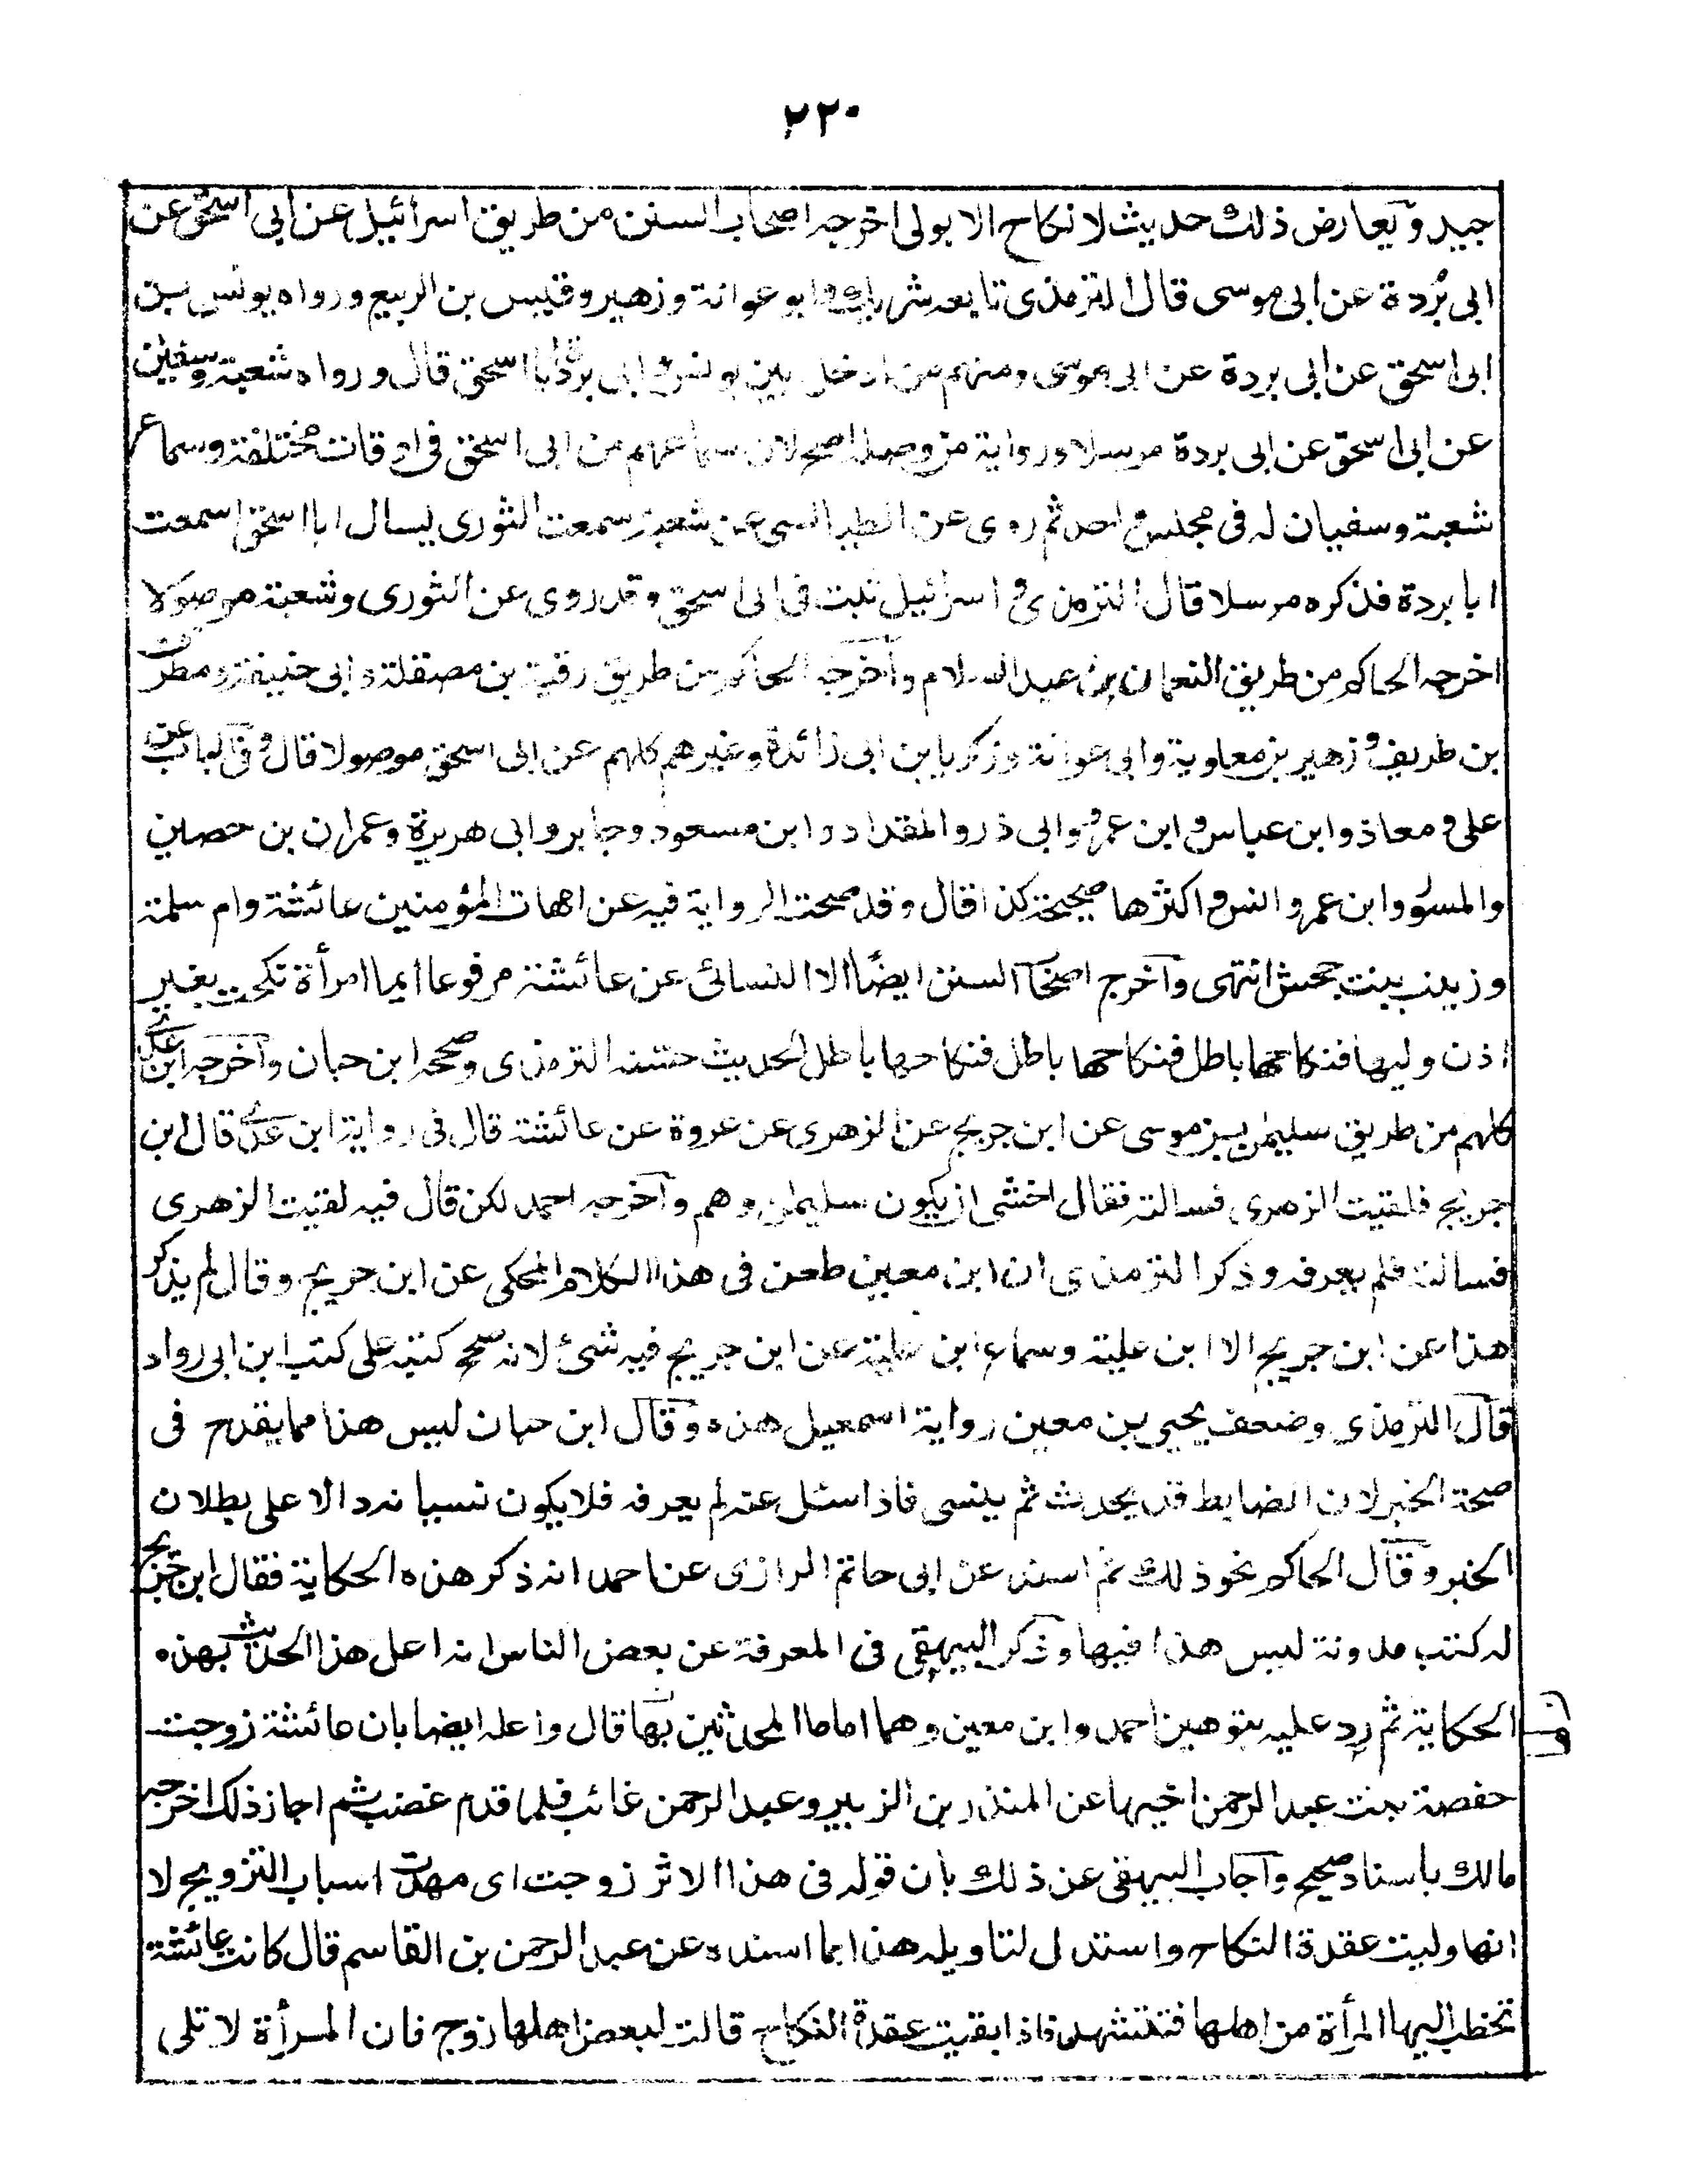 ٢٢٠
جيد ويعارض ذلك حديث لا نكاح الا بولى اخرجه اصحاب السنن من طريق اسرائيل عن ابى اسحق عن
ابى بُردة عن ابى موسى قال الترمذى تابعه شريك وابو عوانة وزهير وقيس بن الربيع ورواه يونس بن
ابى اسحق عن ابى بردة عن ابى موسى ومنهم من ادخل بين يونس وابى بردة ابا اسحق قال ورواه شعبة وسفين
عن ابى اسحق عن ابى بردة مرسلا ورواية من وصله اصح لان سماعهم من ابى اسحق فى اوقات مختلفة وسماع
شعبة وسفيان له فى مجلس واحد ثم روى عن الطيالسى عن شعبة سمعت الثورى يسال ابا اسحق اسمعت
ابا بردة فذكره مرسلا قال الترمذى و اسرائيل ثبت فى ابى اسحق وقد روى عن الثورى وشعبة موصولا
اخرجه الحاكم من طريق النعمان بن عبد السلام وآخرجه الحاكم من طريق رقبة بن مصقلة وابى حنيفة ومطرف
بن طريف وزهير بن معاوية وابى عوانة وزكريا بن ابى زائدة وغيرهم كلهم عن ابى اسحق موصولا قال وفى الباب عن
على ومعاذ وابن عباس وابن عمر وابى ذر والمقداد وابن مسعود وجابر وابى هريرة وعمران بن حصين
والمسور وابن عمرو وانس واكثرها صحيحة كذا قال وقد صحت الرواية فيه عن امهات المؤمنين عائشة وام سلمة
وزينب بنت جحش انتهى وآخرج اصحاب السنن ايضًا الا النسائى عن عائشة مرفوعا ايما امرأة نكحت بغير
اذن وليها فنكاحها باطل فنكاحها باطل فنكاحها باطل الحديث حسنه الترمذى وصححه ابن حبان وآخرجه ابن عدى
كلهم من طريق سليمن بن موسى عن ابن جريج عن الزهرى عن عروة عن عائشة قال فى رواية ابن عدى قال ابن
جريج فلقيت الزهرى فسالته فقال اخشى ان يكون سليمن وهم وآخرجه احمد لكن قال فيه لقيت الزهرى
فسالته فلم يعرفه وذكر الترمذى ان ابن معين طعن فى هذا الكلام المحكى عن ابن جريج وقال لم يذكر
هذا عن ابن جريج الا ابن علية وسماع ابن علية عن ابن جريج فيه شئ لانه صحح كتبه على كتب ابن ابى رواد
قال الترمذى وضعف يحيى بن معين رواية اسمعيل هذه وقال ابن حبان ليس هذا مما يقدح فى
صحة الخبر لان الضابط قد يحدث ثم ينسى فاذا سئل عنه لم يعرفه فلا يكون نسيانه دالا على بطلان
الخبر وقال الحاكم نحو ذلك ثم اسند عن ابى حاتم الرازى عن احمد انه ذكر هذه الحكاية فقال ابن جريج
له كتب مدونة ليس هذا فيها وذكر البيهقى فى المعرفة عن بعض الناس انه اعل هذا الحديث بهذه
الحكاية ثم رد عليه بتوهين احمد وابن معين وهما اماما المحدثين بها قال واعله ايضا بان عائشة زوجت
حفصة بنت عبد الرحمن اخيها عن المنذر بن الزبير وعبد الرحمن غائب فلما قدم غضب ثم اجاز ذلك اخرجه
مالك باسناد صحيح وآجاب البيهقى عن ذلك بان قوله فى هذا الاثر زوجت اى مهدت اسباب التزويج لا
انها وليت عقدة النكاح واستدل لتاويله هذا بما اسنده عن عبد الرحمن بن القاسم قال كانت عائشة
تخطب اليها المرأة من اهلها فتتشهد فاذا بقيت عقدة النكاح قالت لبعض اهلها زوج فان المرأة لا تلى